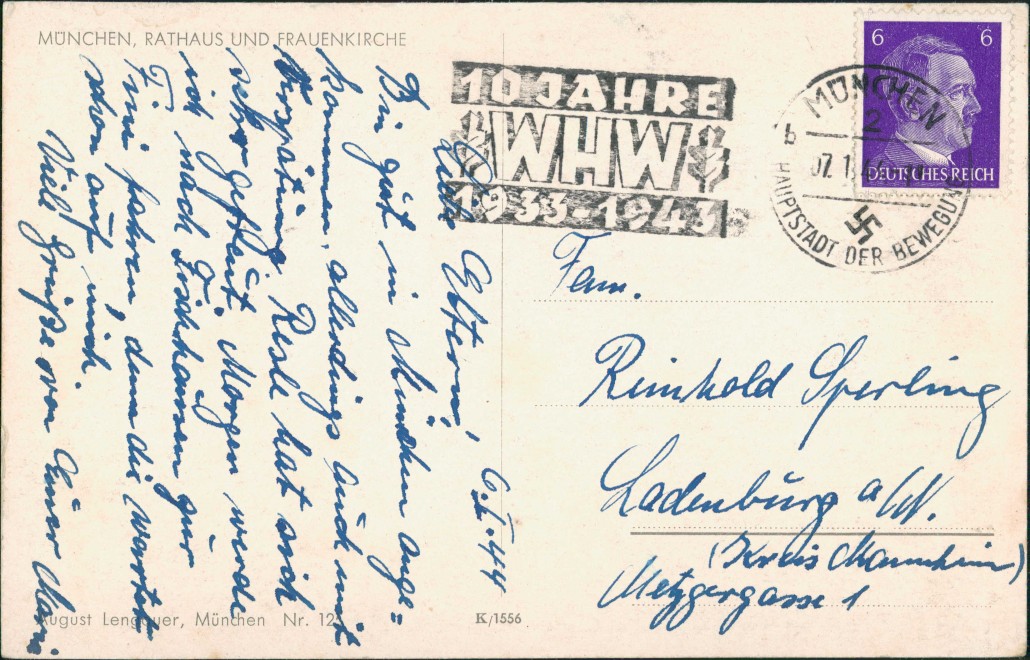 MÜNCHEN, RATHAUS UND FRAUENKIRCHE
10 JAHRE
WHW
1933-1943
MÜNCHEN
2
b
07.1.44
HAUPTSTADT DER BEWEGUNG
6 6
DEUTSCHES REICH
6.I.44
Liebe Eltern,
Bin gut in München ange=
kommen, allerdings auch mit
Verspätung. Resl hat sich
sehr gefreut. Morgen werde
ich nach
fahren, denn die wartet
schon auf mich.
Viele Grüße von Eurer
Fam.
Reinhold Sperling
Ladenburg a/N.
(Kreis Mannheim)
Metzgergasse 1
August Lengauer, München Nr. 12
K/1556